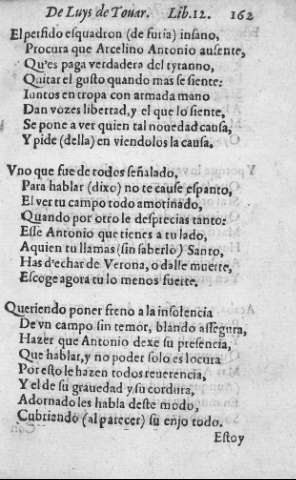 De Luys de Touar. Lib.12. 162
El perfido esquadron (de furia) insano,
Procura que Arcelino Antonio ausente,
Qu'es paga verdadera del tyranno,
Quitar el gusto quando mas se siente:
Iuntos en tropa con armada mano
Dan vozes libertad, y el que lo siente,
Se pone a ver quien tal nouedad causa,
Y pide (della) en viendolos la causa.
Vno que fue de todos señalado,
Para hablar (dixo) no te cause espanto,
El ver tu campo todo amotinado,
Quando por otro le desprecias tanto:
Esse Antonio que tienes a tu lado,
Aquien tu llamas (sin saberlo) Santo,
Has d'echar de Verona, o dalle muerte,
Escoge agora tu lo menos fuerte.
Queriendo poner freno a la insolencia
De vn campo sin temor, blando assegura,
Hazer que Antonio dexe su presencia,
Que hablar, y no poder solo es locura
Por esto le hazen todos reuerencia,
Y el de su grauedad y su cordura,
Adornado les habla deste modo,
Cubriendo (al parecer) su enjo todo.
Estoy